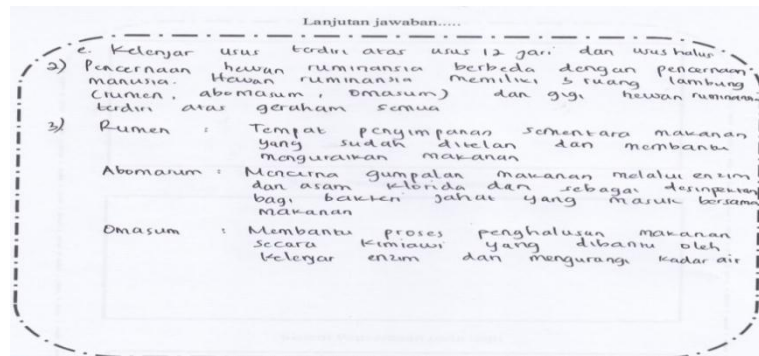 Lanjutan jawaban.....
e. Kelenjar usus terdiri atas usus 12 jari dan usus halus
2) Pencernaan hewan ruminansia berbeda dengan pencernaan
manusia. Hewan ruminansia memiliki 3 ruang lambung
(rumen, abomasum, omasum) dan gigi hewan ruminansia
terdiri atas geraham semua
3) Rumen : Tempat penyimpanan sementara makanan
yang sudah ditelan dan membantu
menguraikan makanan
Abomasum : Mencerna gumpalan makanan melalui enzim
dan asam klorida dan sebagai desinpektan
bagi bakteri jahat yang masuk bersama
makanan
Omasum : Membantu proses penghalusan makanan
secara kimiawi yang dibantu oleh
kelenjar enzim dan mengurangi kadar air